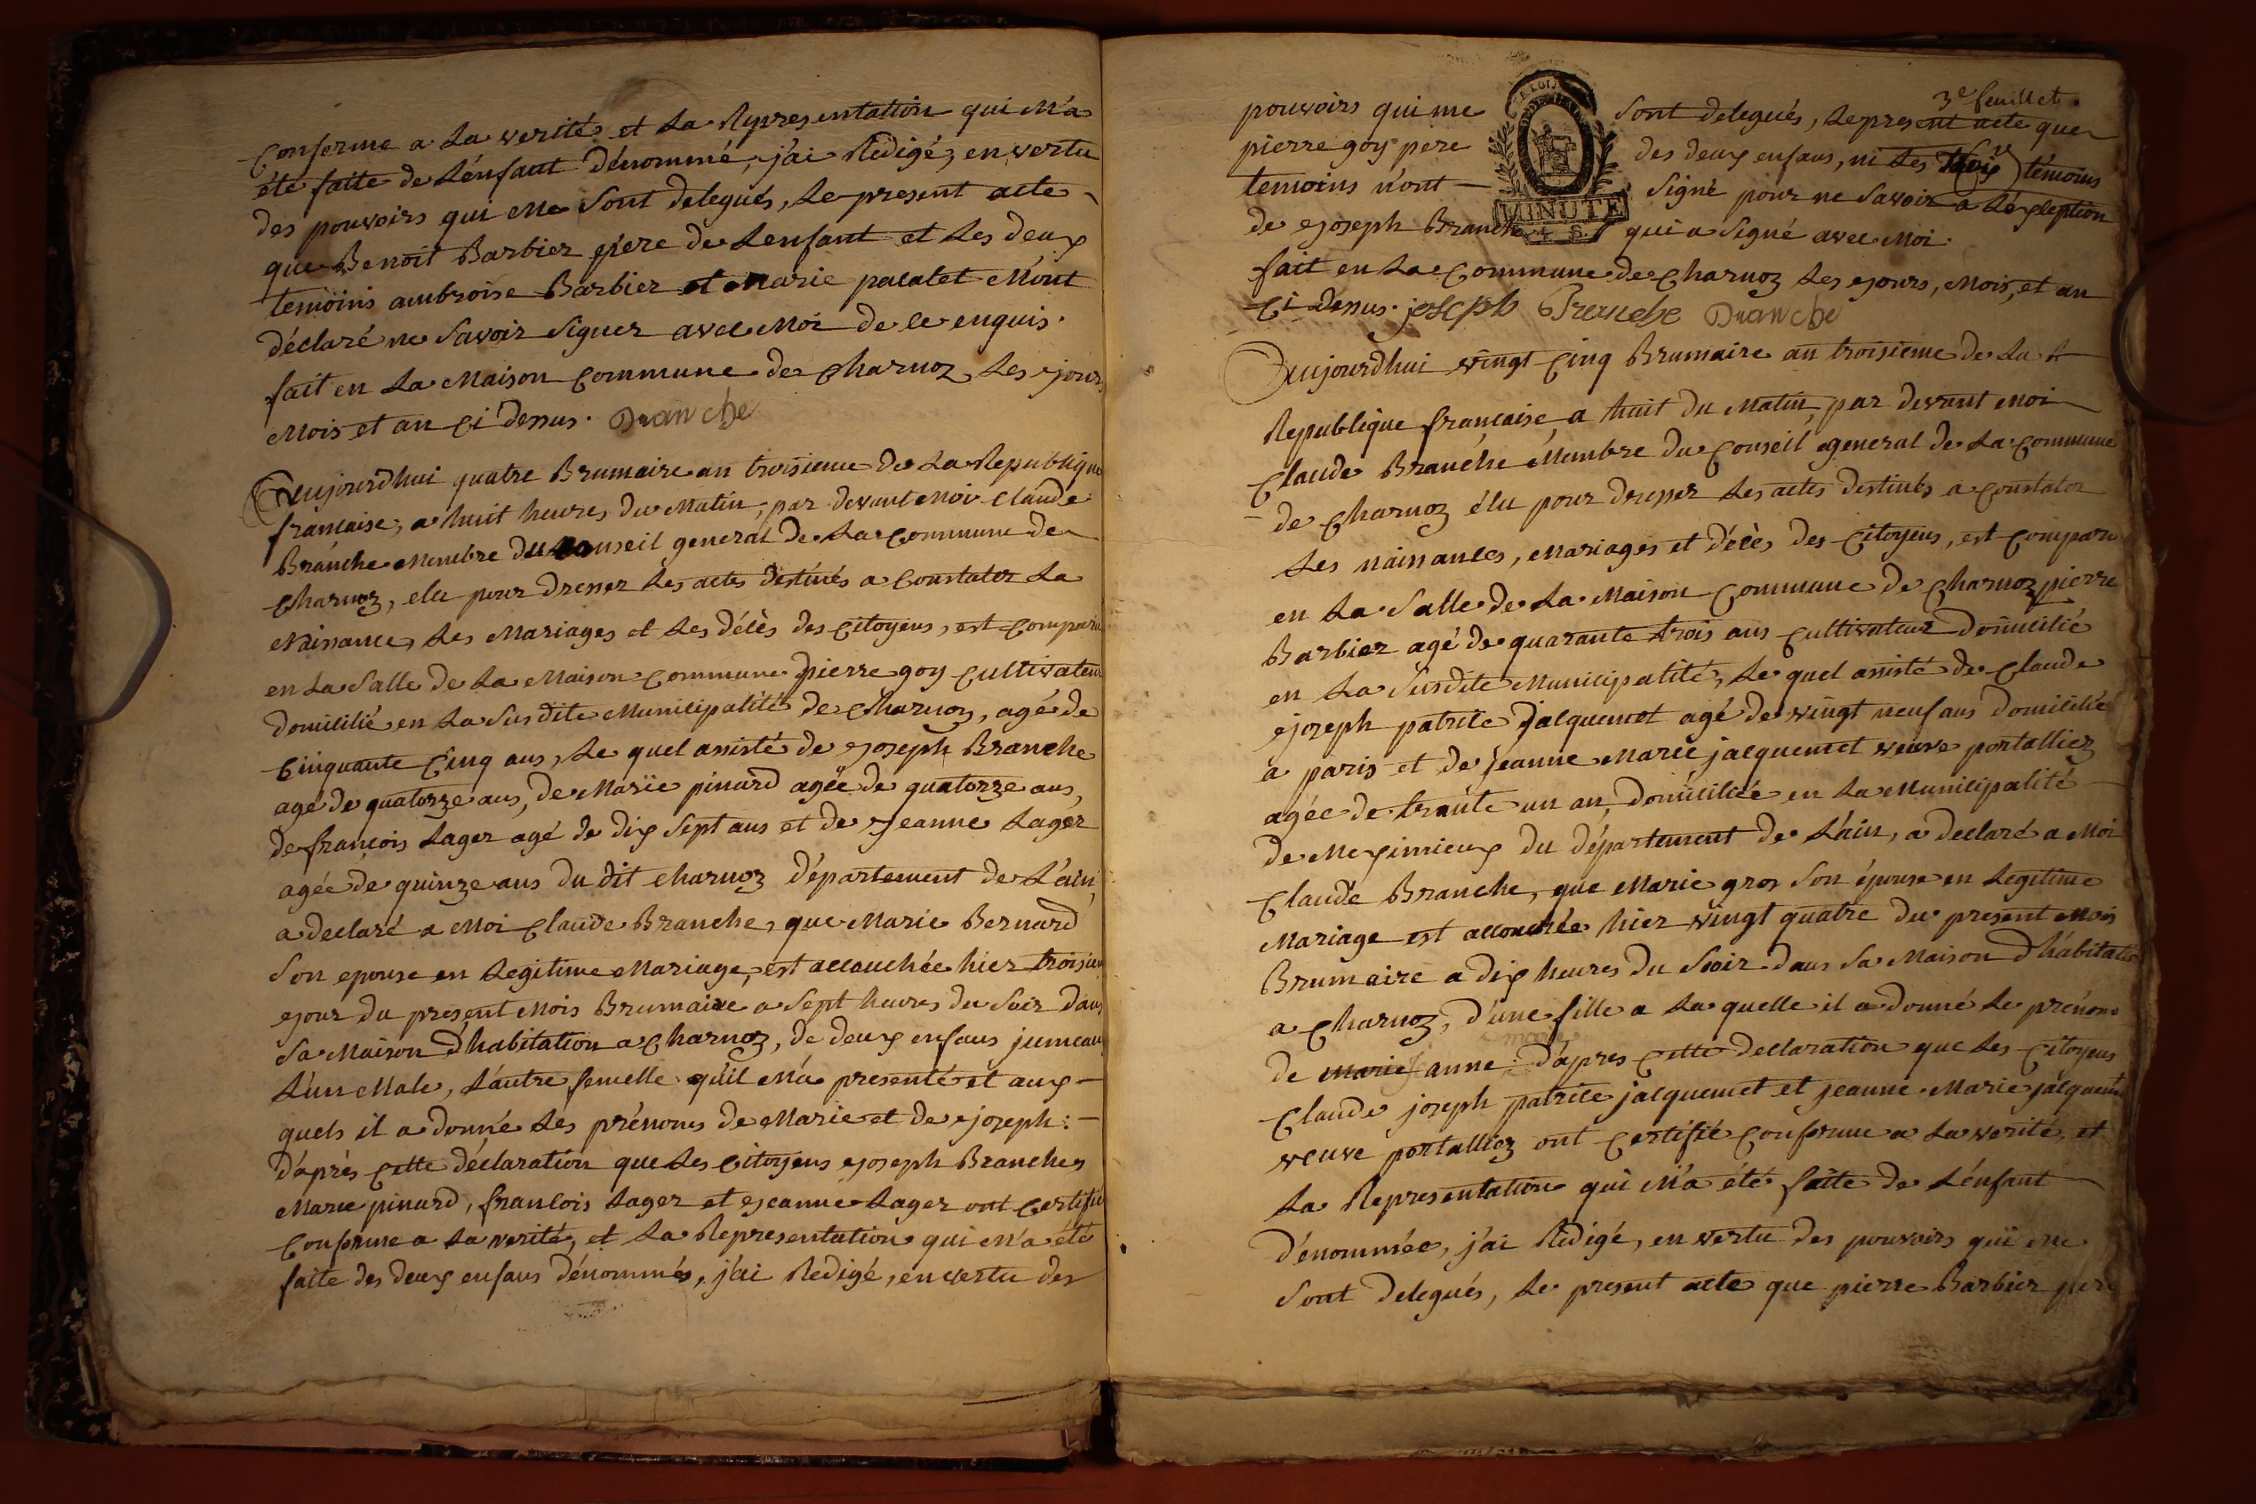 Conforme a La verité, et La Representation qui M'a
été faite de L'énfant Dénommé, j'ai Redigé, en vertu
des pouvoirs qui Me Sont delegués, Le present acte
que Benoit Barbier pére de L'enfant et Les deux
temöins ambroise Barbier et Marie M'ont
déclaré ne Savoir Signer avec Moi de ce enquis.
fait en La Maison Commune de Charnoz Les jour,
Mois et an Ci Dessus. Branche
Aujourdhui quatre Brumaire an troisieme de La Republique
francaise, a huit heures du Matin, par devant Moi Claude
Branche Membre du Conseil general de La Commune de
Charnoz, elu pour Dresser Les actes destinés a Constater La
Naissance, Les Mariages et Les décès des Citoyens, est Comparu
en La Salle de La Maison Commune pierre goy Cultivateur
domicilié en La Susdite Municipalité de Charnoz, agé de
Cinquante Cinq ans, Le quel assisté de joseph Branche
agé de quatorze ans, de Marie pinard agée de quatorze ans,
de francois Lager agé de dix Sept ans et de jeanne Lager
agée de quinze ans du dit Charnoz Département de L'ain,
a declaré a Moi Claude Branche, que Marie Bernard
Son epouse en Legitime Mariage, est accouchée hier troisieme
jour du present Mois Brumaire a Sept heures du Soir dans
Sa Maison D'habitation a Charnoz, de deux enfans jumeaux
L'un Male, L'autre femelle qu'il M'a presenté et aux-
quels il a donné Les prénoms de Marie et de joseph: -
D'aprés Cette déclaration que Les Citoyens joseph Branche
Marie pinard, francois Lager et jeanne Lager ont Certifié
Conforme a La verité, et La Representation qui M'a été
faite des deux enfans dénommés, j'ai Redigé, en vertu des
3e feuillet.
pouvoirs qui me Sont delegués, Le present acte que
pierre goy pere des deux enfans, ni Les témoins
temoins n'ont Signé pour ne Savoir a L'exception
de joseph Branche qui a Signé avec Moi.
MINUTE
fait en La Commune de Charnoz Les jours, Mois, et an
Ci Dessus. joseph Branche Branche
Aujourdhui vingt Cinq Brumaire an troisieme de La
Republique francaise, a huit du Matin, par devant Moi
Claude Branche Membre du Conseil general de La Commune
de Charnoz élu pour dresser Les actes destinés a Constater
Les naissances, Mariages et décès des Citoyens, est Comparu
en La Salle de La Maison Commune de Charnoz pierre
Barbier agé de quarante trois ans Cultivateur Domicilié
en La Susdite Municipalité, Le quel assisté de Claude
joseph patrice jacquemet agé de vingt neuf ans domicilié
a paris et de jeanne Marie jacquemet veuve portallier
agée de trente un an, domiciliée en La Municipalité
de Meximieux du département de L'ain, a declaré a Moi
Claude Branche, que Marie gros Son épouse en Legitime
Mariage est accouchée hier vingt quatre du present Mois
Brumaire a dix heures du Soir dans Sa Maison D'habitation
a Charnoz, d'une fille a La quelle il a donné Le prénom
de Marie anne: D'apres Cette declaration que Les Citoyens
Claude joseph patrice jacquemet et jeanne Marie jacquemet
veuve portallier ont Certifié Conforme a La verité, et
La Representation qui M'a été faite de L'énfant
dénommée, j'ai Rédigé, en vertu des pouvoirs qui me
Sont delegués, Le present acte que pierre Barbier pere